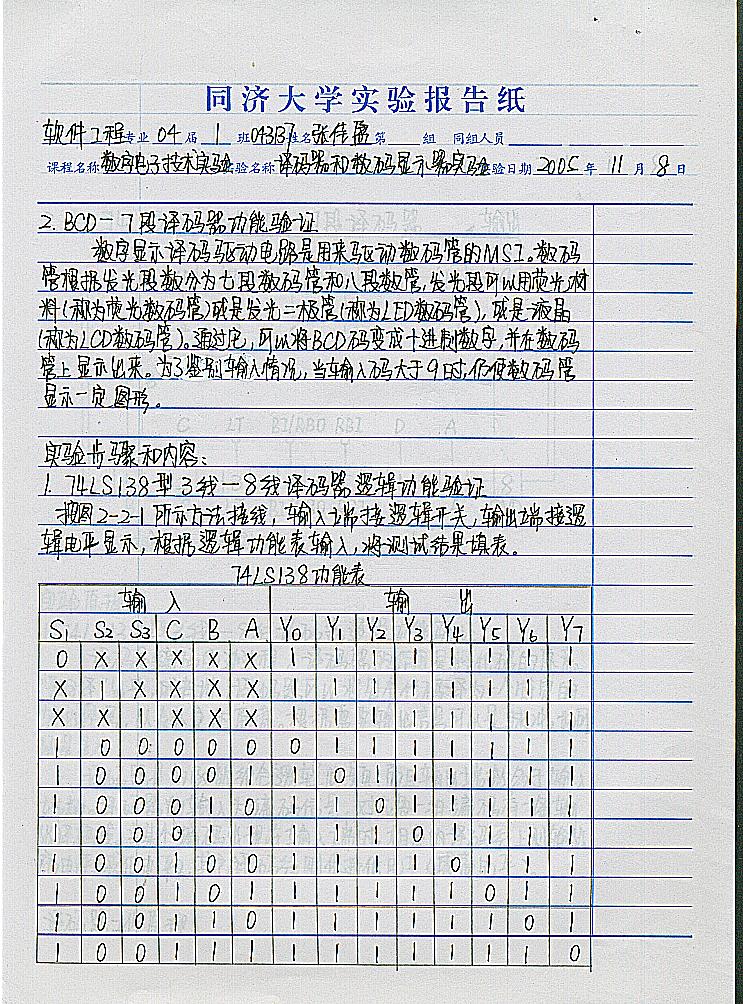 同济大学实验报告纸
软件工程专业 04 届 1 班 姓名 张佳盈 第 组 同组人员
课程名称 数字电子技术实验 实验名称 译码器和数码显示器实验 实验日期 2005 年 11 月 8 日
2. BCD—7段译码器功能验证
数字显示译码驱动电路是用来驱动数码管的MSI。数码
管根据发光段数分为七段数码管和八段数管,发光段可以用荧光材
料(称为荧光数码管)或是发光二极管(称为LED数码管),或是液晶
(称为LCD数码管)。通过它,可以将BCD码变成十进制数字,并在数码
管上显示出来。为了鉴别输入情况,当输入码大于9时,仍使数码管
显示一定图形。
实验步骤和内容:
1. 74LS138型3线—8线译码器逻辑功能验证
按图2-2-1所示方法接线,输入端接逻辑开关,输出端接逻
辑电平显示,根据逻辑功能表输入,将测试结果填表。
74LS138功能表
输 入 输 出
S1 S2 S3 C B A Y0 Y1 Y2 Y3 Y4 Y5 Y6 Y7
0 X X X X X 1 1 1 1 1 1 1 1
X 1 X X X X 1 1 1 1 1 1 1 1
X X 1 X X X 1 1 1 1 1 1 1 1
1 0 0 0 0 0 0 1 1 1 1 1 1 1
1 0 0 0 0 1 1 0 1 1 1 1 1 1
1 0 0 0 1 0 1 1 0 1 1 1 1 1
1 0 0 0 1 1 1 1 1 0 1 1 1 1
1 0 0 1 0 0 1 1 1 1 0 1 1 1
1 0 0 1 0 1 1 1 1 1 1 0 1 1
1 0 0 1 1 0 1 1 1 1 1 1 0 1
1 0 0 1 1 1 1 1 1 1 1 1 1 0